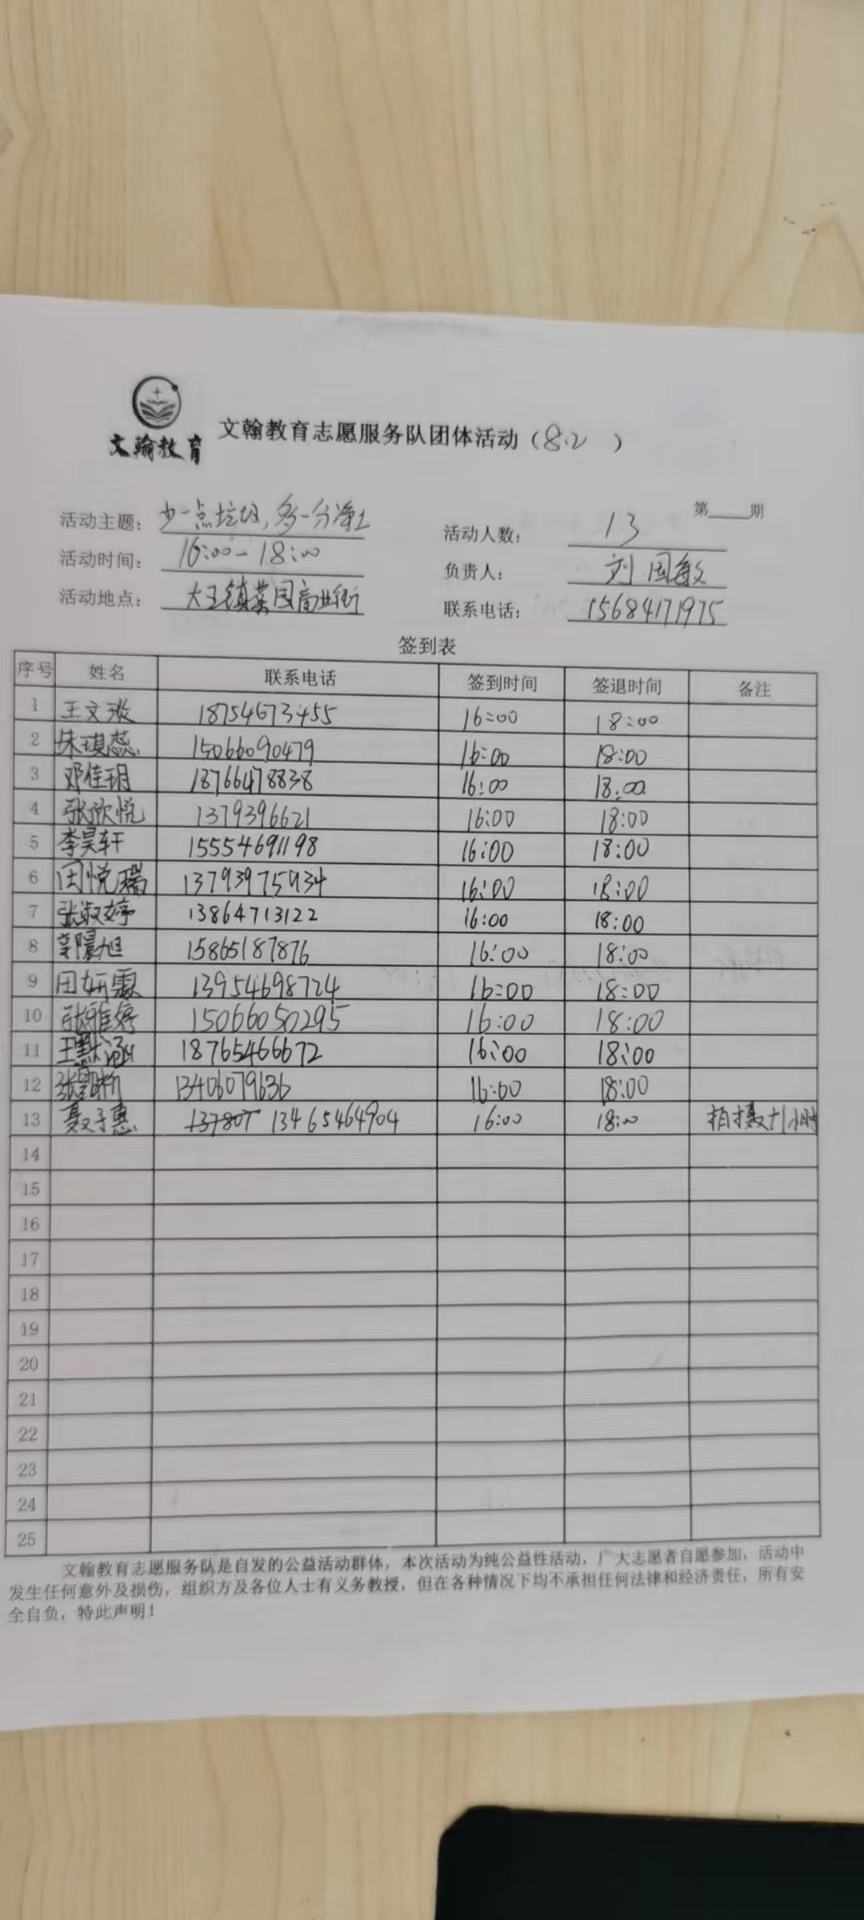 文翰教育
文翰教育志愿服务队团体活动（8.2 ）
第____期
活动主题：少一点垃圾,多一分净土
活动人数： 13
活动时间：16:00-18:00
负责人： 刘国敏
活动地点： 大王镇菜园商业街
联系电话：15684171975
签到表
序号 姓名 联系电话 签到时间 签退时间 备注
1 王文 18754673455 16:00 18:00
2 朱琪蕊 15066090479 16:00 18:00
3 邓佳玥 18766478838 16:00 18:00
4 张欣悦 1379396621 16:00 18:00
5 李昊轩 15554691198 16:00 18:00
6 田悦瑞 13793975934 16:00 18:00
7 张淑婷 13864713122 16:00 18:00
8 郭晨旭 15865187876 16:00 18:00
9 田妍霖 13954698724 16:00 18:00
10 张雅婷 15066050295 16:00 18:00
11 王默涵 18765466672 16:00 18:00
12 张 13406079636 16:00 18:00
13 聂子惠 137807 13465464904 16:00 18:00 拍摄+1小时
14
15
16
17
18
19
20
21
22
23
24
25
文翰教育志愿服务队是自发的公益活动群体，本次活动为纯公益性活动，广大志愿者自愿参加，活动中
发生任何意外及损伤，组织方及各位人士有义务教授，但在各种情况下均不承担任何法律和经济责任，所有安
全自负，特此声明！